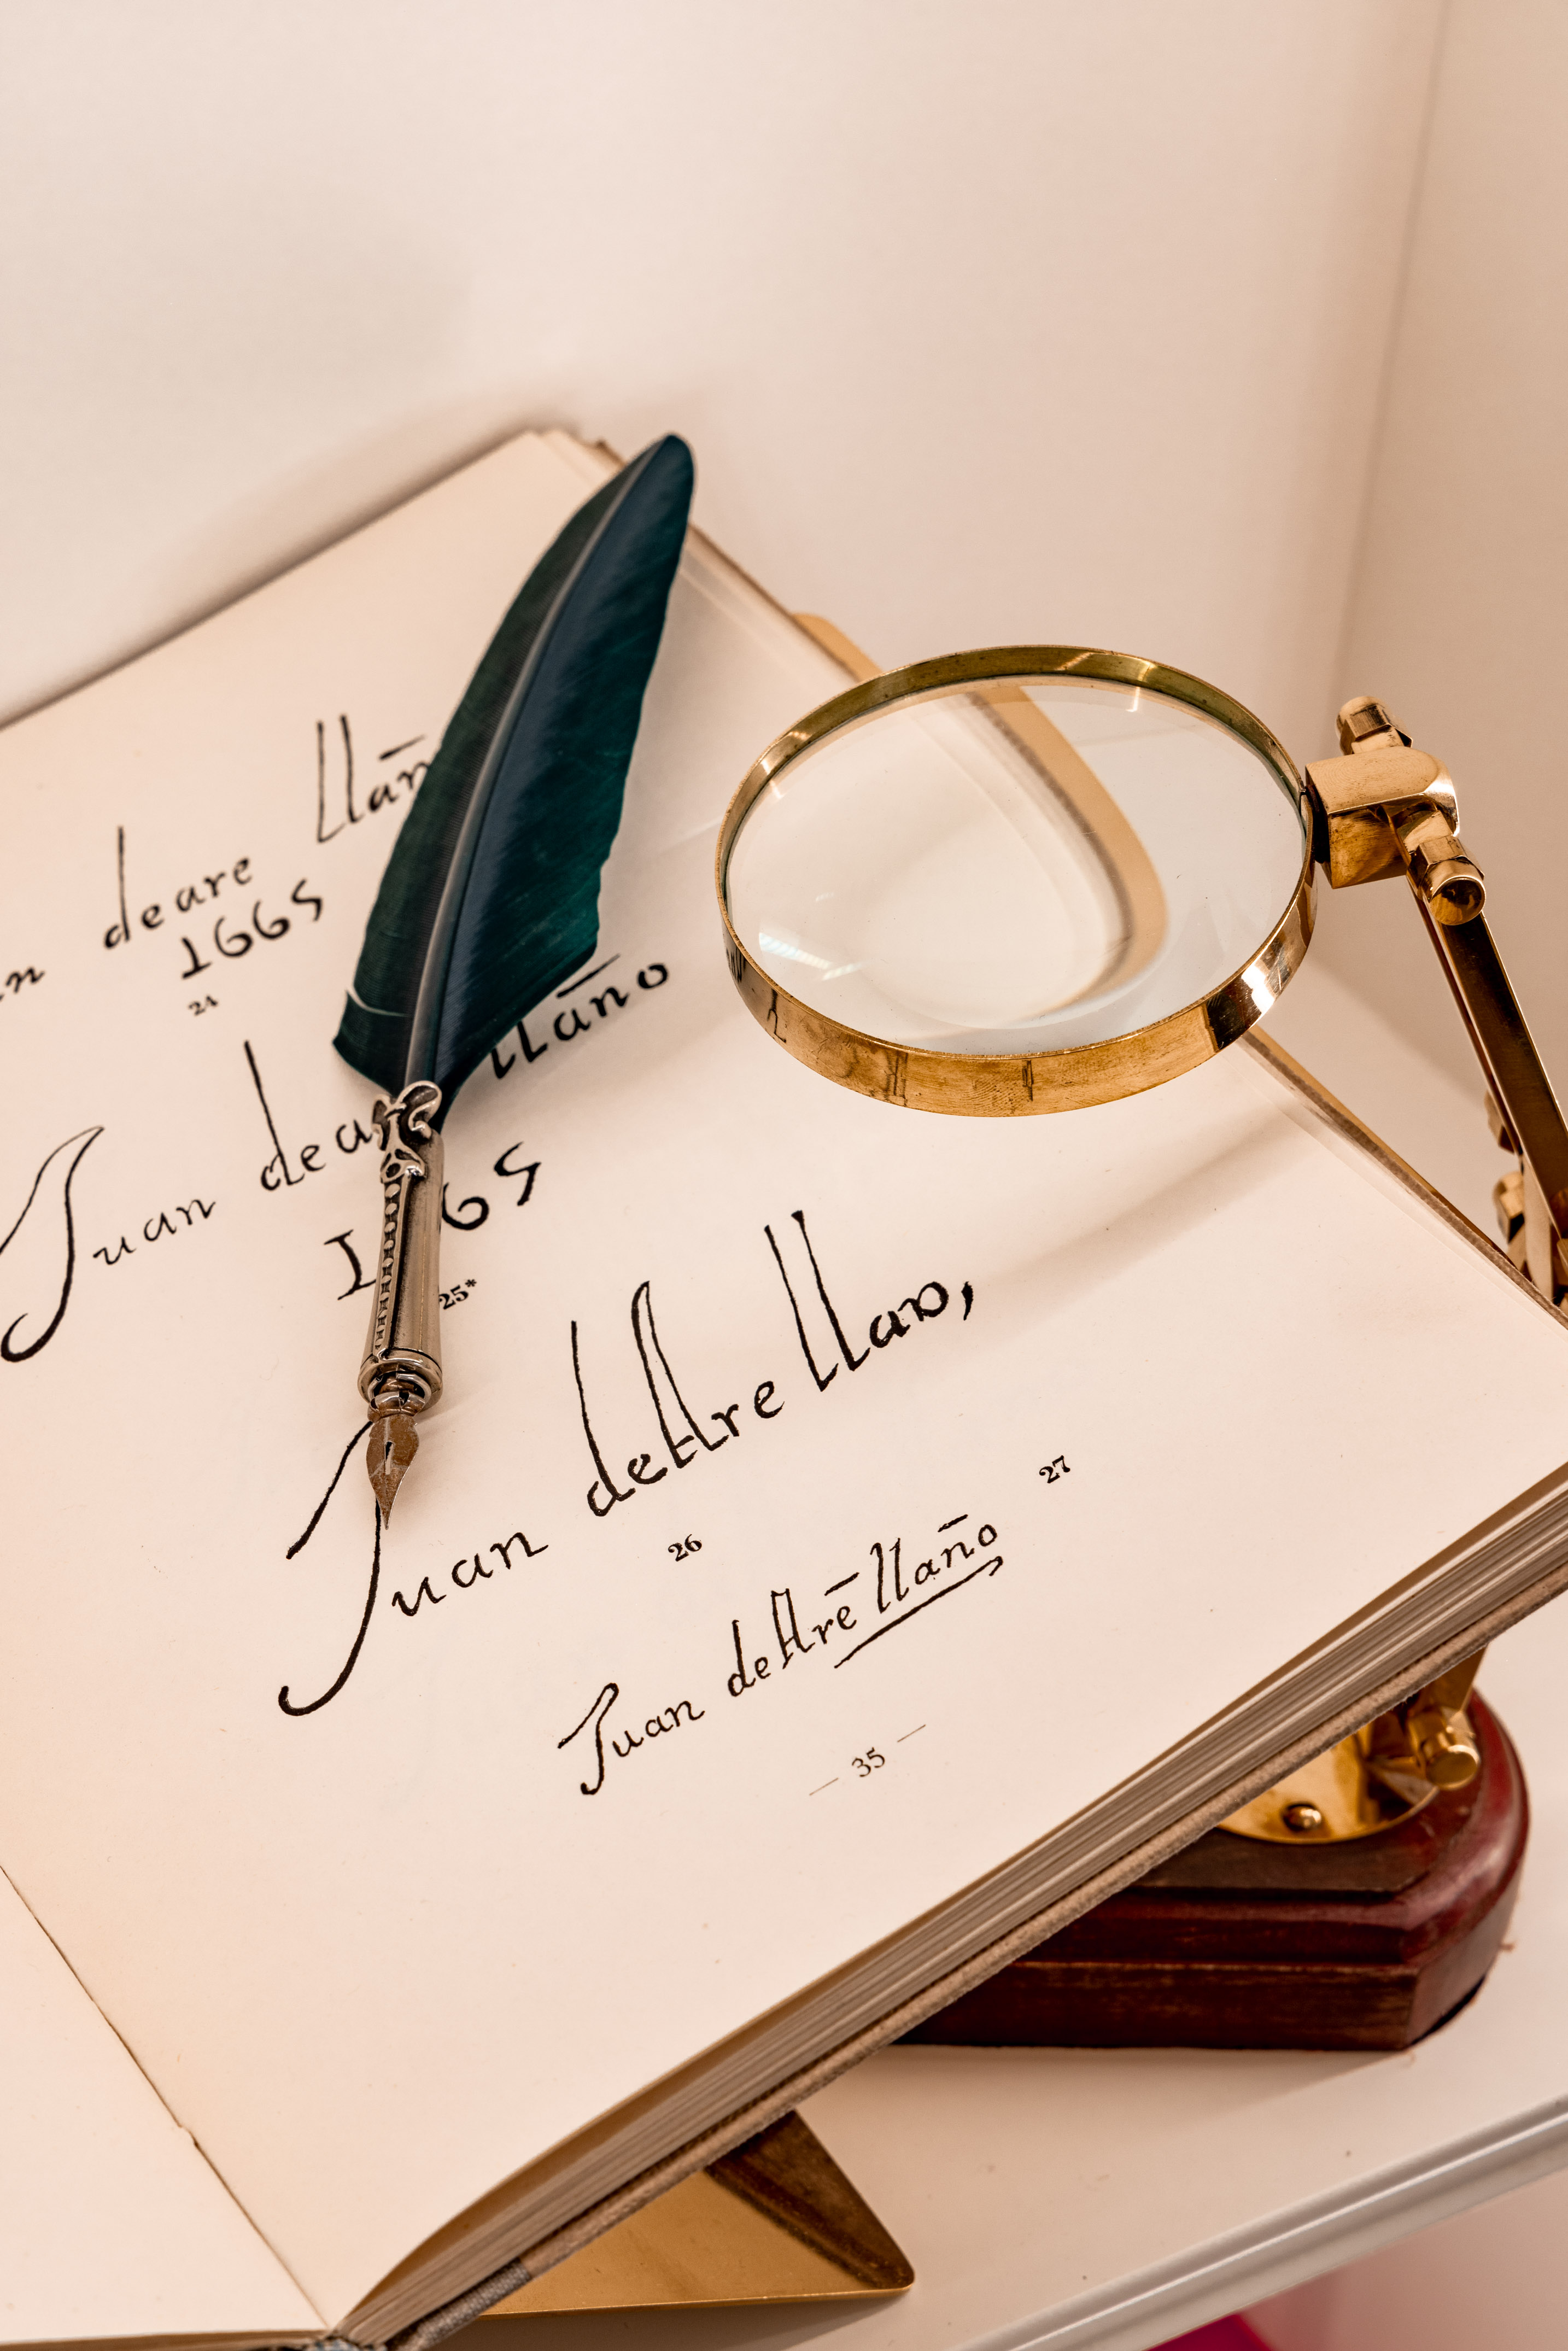 deare llañ
1665
24
Juan dea llaño
1 65
25*
Juan deAre llano,
26
27
Juan deArē llaño
— 35 —